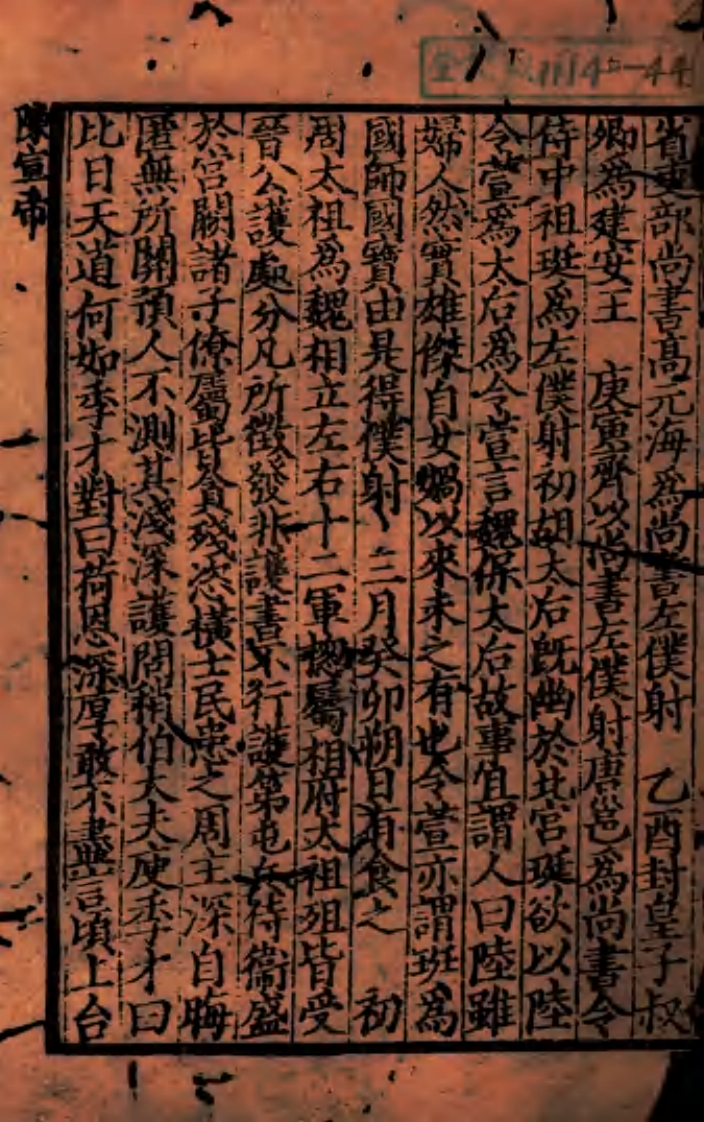 省吏部尚書高元海為尚書左僕射　乙酉封皇子叔
卿為建安王　庚寅齊以尚書左僕射唐邕為尚書令
侍中祖珽為左僕射初胡太后既幽於北宮珽欲以陸
令萱為太后為令萱言魏保太后故事且謂人曰陸雖
婦人然實雄傑自女媧以來未之有也令萱亦謂珽為
國師國寳由是得僕射　三月癸卯朔日有食之　初
周太祖為魏相立左右十二軍揔屬相府太祖殂皆受
晉公護處分凡所徵發非護書不行護第屯兵侍衞盛
於宮闕諸子僚屬皆貪殘恣橫士民患之周主深自晦
匿無所關預人不測其淺深護問稍伯大夫庾季才曰
比日天道何如季才對曰荷恩深厚敢不盡言頃上台
陳宣帝
1114
44